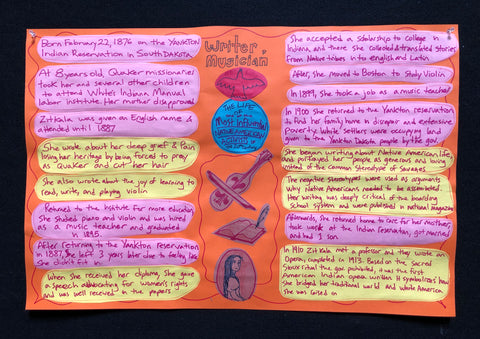 Born February 22, 1876 on the YANKTON
Indian Reservation in South DAKOTA
At 8 years old, Quaker missionaries
took her and several other children
to attend White's Indiana Manual
labor institute. Her mother disapproved
Zitkala was given an English name &
attended until 1887
She wrote about her deep grief & Pain
losing her heritage by being forced to pray
as Quaker and cut her hair
She also wrote about the joy of learning to
read, write, and playing violin
Returned to the institute for more education.
She studied piano and violin and was hired
as a music teacher and graduated
in 1895.
After returning to the Yankton reservation
in 1887, She left 3 years later due to feeling like
She didn't fit
When She received her diploma, She gave
a speech advocating for women's rights
and was well received in the papers
Writer,
Musician
THE LIFE
Most influential
NATIVE AMERICAN
ACTIVIST
She accepted a scholarship to college in
Indiana and there She collected & translated stories
from Native tribes in to english and Latin
After, She moved to Boston to Study Violin
In 1899, She took a job as a music teacher
In 1900 She returned to the Yankton reservation
to find her family home in disrepair and extensive
Poverty. White settlers were occupying land
given to the Yankton Dakota people by the gov.
She began writing about Native American life,
and portrayed her people as generous and loving
instead of the common Stereotype of Savages
The negative Stereotypes were used as arguments
Why Native Americans needed to be assimilated.
Her writing was deeply critical of the boarding
School system and were published in national magazines
Afterwards, She returned home to care for her mother,
took work at the Indian reservation, got married
and had 1 son.
In 1910 Zitkala met a professor and they wrote an
Opera, completed in 1913. Based on the sacred
Sioux ritual the gov. prohibited, it was the first
American Indian opera written. It symbolizes how
She bridged her traditional world and white America
She was raised in